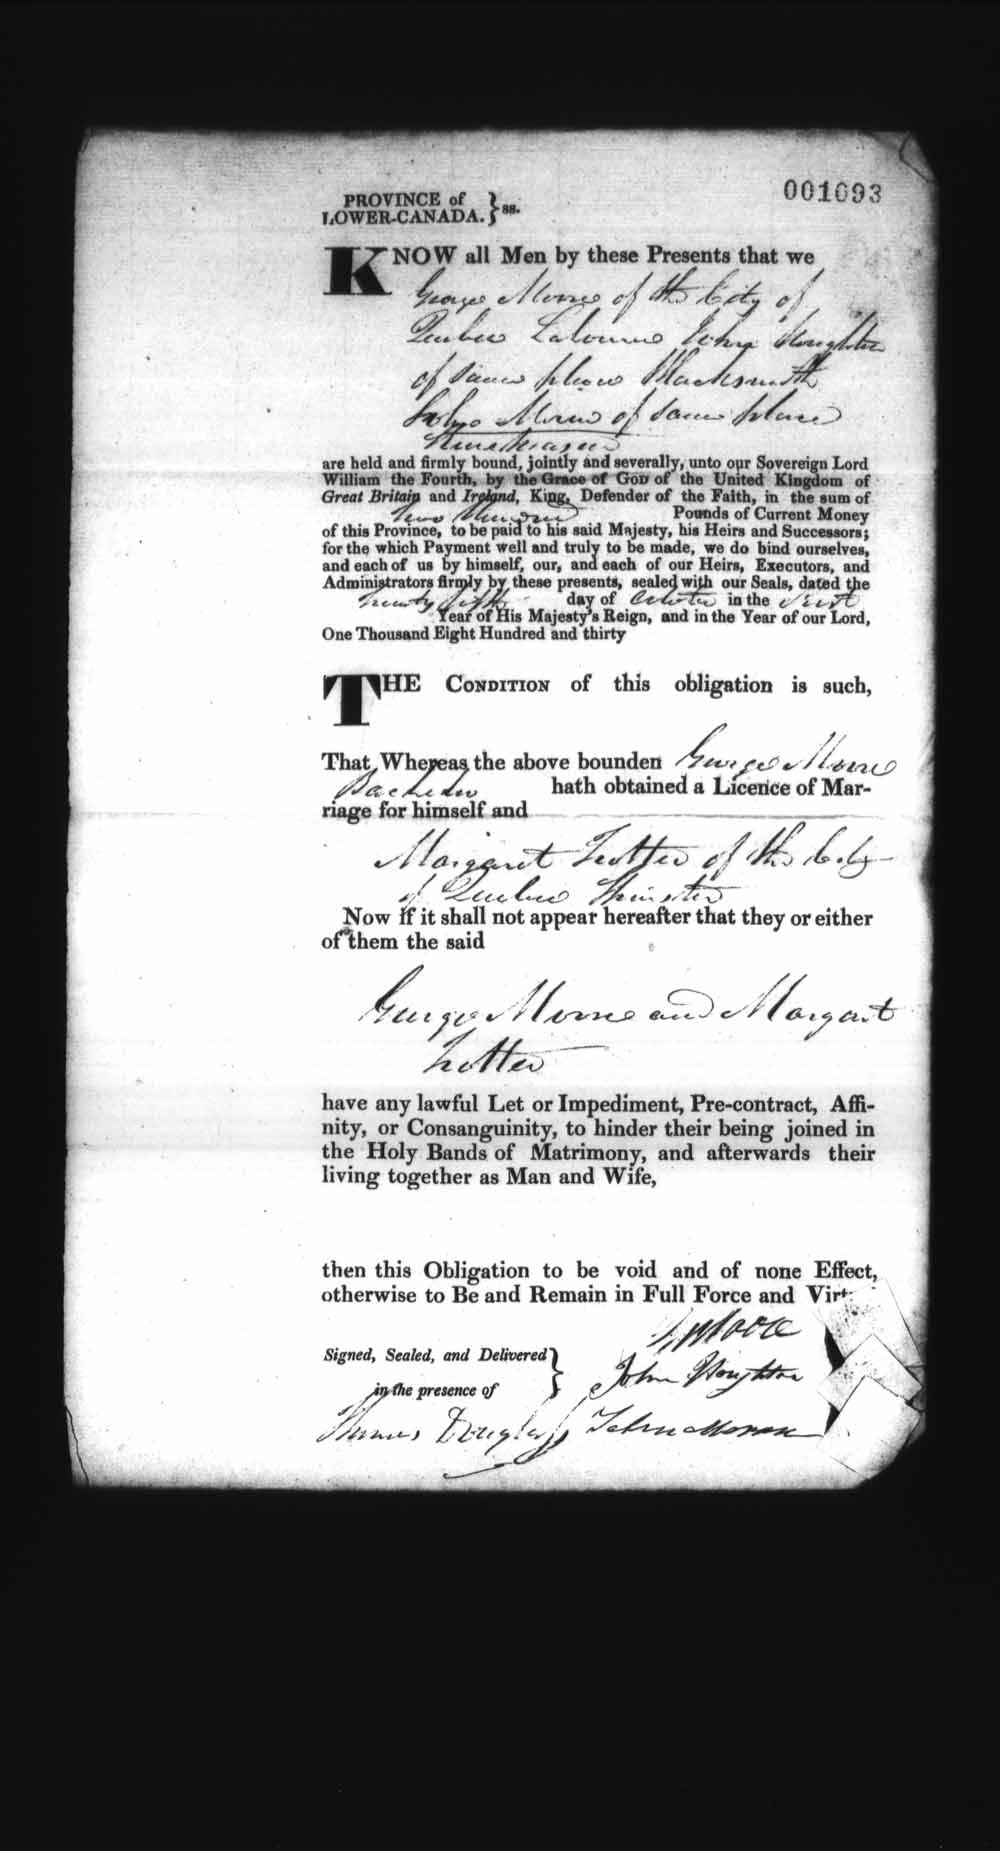 001093
PROVINCE of
LOWER-CANADA. } ss.
KNOW all Men by these Presents that we
George Moore of the City of
Quebec Labourer John Houghton
of same place Blacksmith
John Moran of same place
are held and firmly bound, jointly and severally, unto our Sovereign Lord
William the Fourth, by the Grace of GOD of the United Kingdom of
Great Britain and Ireland, King, Defender of the Faith, in the sum of
Two Hundred Pounds of Current Money
of this Province, to be paid to his said Majesty, his Heirs and Successors;
for the which Payment well and truly to be made, we do bind ourselves,
and each of us by himself, our, and each of our Heirs, Executors, and
Administrators firmly by these presents, sealed with our Seals, dated the
twenty fifth day of October in the first
Year of His Majesty's Reign, and in the Year of our Lord,
One Thousand Eight Hundred and thirty
THE CONDITION of this obligation is such,
That Whereas the above bounden George Moore
Bachelor hath obtained a Licence of Mar-
riage for himself and
Margaret Trotter of the City
of Quebec Spinster
Now if it shall not appear hereafter that they or either
of them the said
George Moore and Margaret
Trotter
have any lawful Let or Impediment, Pre-contract, Affi-
nity, or Consanguinity, to hinder their being joined in
the Holy Bands of Matrimony, and afterwards their
living together as Man and Wife,
then this Obligation to be void and of none Effect,
otherwise to Be and Remain in Full Force and Virt
G Moore
Signed, Sealed, and Delivered }
John Houghton
in the presence of
Thomas Douglass John Moran